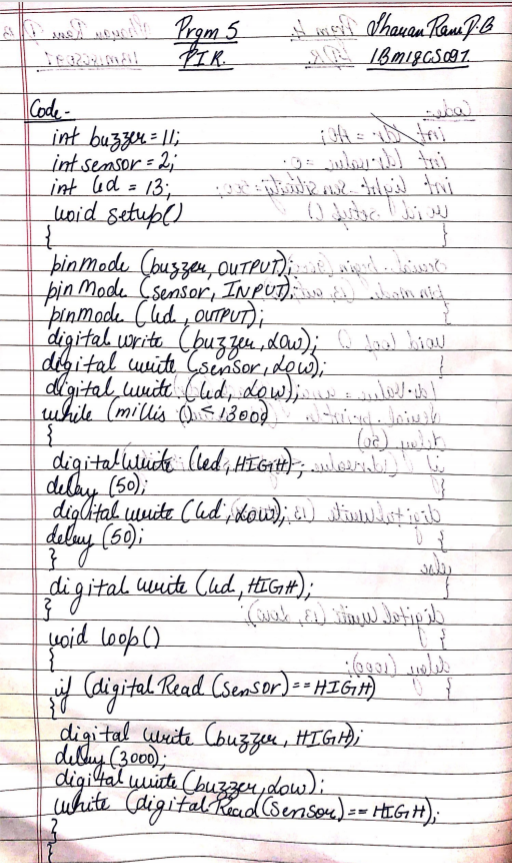 Prgm 5
PIR.
Shavan Rani P.B
1BM18CS097.
Code-
int buzzer = 11;
int sensor = 2;
int led = 13;
void setup()
{
pinmode (buzzer, OUTPUT);
pin Mode (sensor, INPUT);
pinmode (led, OUTPUT);
digital write (buzzer, LOW);
digital write (sensor, LOW);
digital write (led, LOW);
while (millis () < 1300)
{
digitalWrite (led, HIGH);
delay (50);
digital write (led, LOW);
delay (50);
}
digital write (led, HIGH);
}
void loop()
{
if (digital Read (sensor) == HIGH)
{
digital write (buzzer, HIGH);
delay (3000);
digital write (buzzer, Low);
while (digital Read (sensor) == HIGH);
}
}